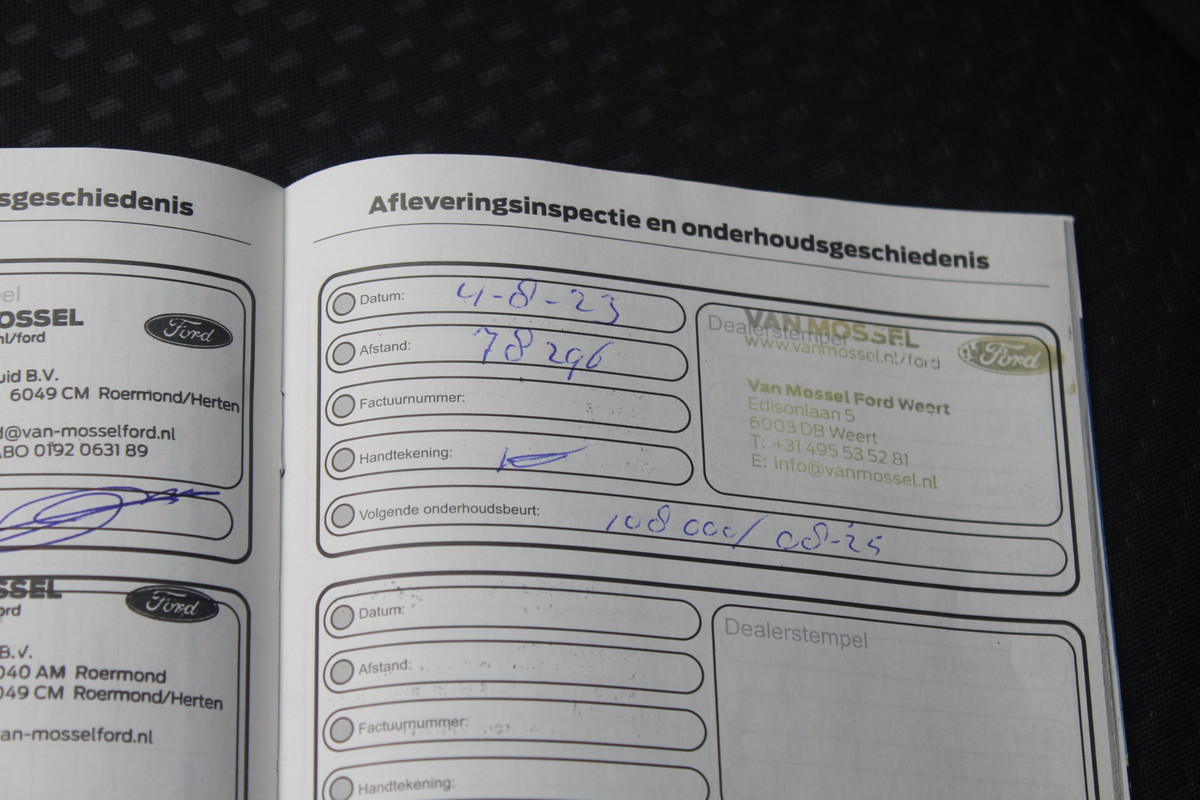 sgeschiedenis
el
OSSEL
Ford
nl/ford
uid B.V.
6049 CM Roermond/Herten
d@van-mosselford.nl
ABO 0192 0631 89
SSEL
Ford
ord
B.V.
040 AM Roermond
049 CM Roermond/Herten
an-mosselford.nl
Afleveringsinspectie en onderhoudsgeschiedenis
Datum: 4-8-23
Afstand: 78 296
Factuurnummer:
Handtekening:
Volgende onderhoudsbeurt: 108 000/ 08-25
Dealerstempel
VAN MOSSEL
www.vanmossel.nl/ford
Ford
Van Mossel Ford Weert
Edisonlaan 5
6003 DB Weert
T: +31 495 53 52 81
E: info@vanmossel.nl
Datum:
Afstand:
Factuurnummer:
Handtekening:
Dealerstempel